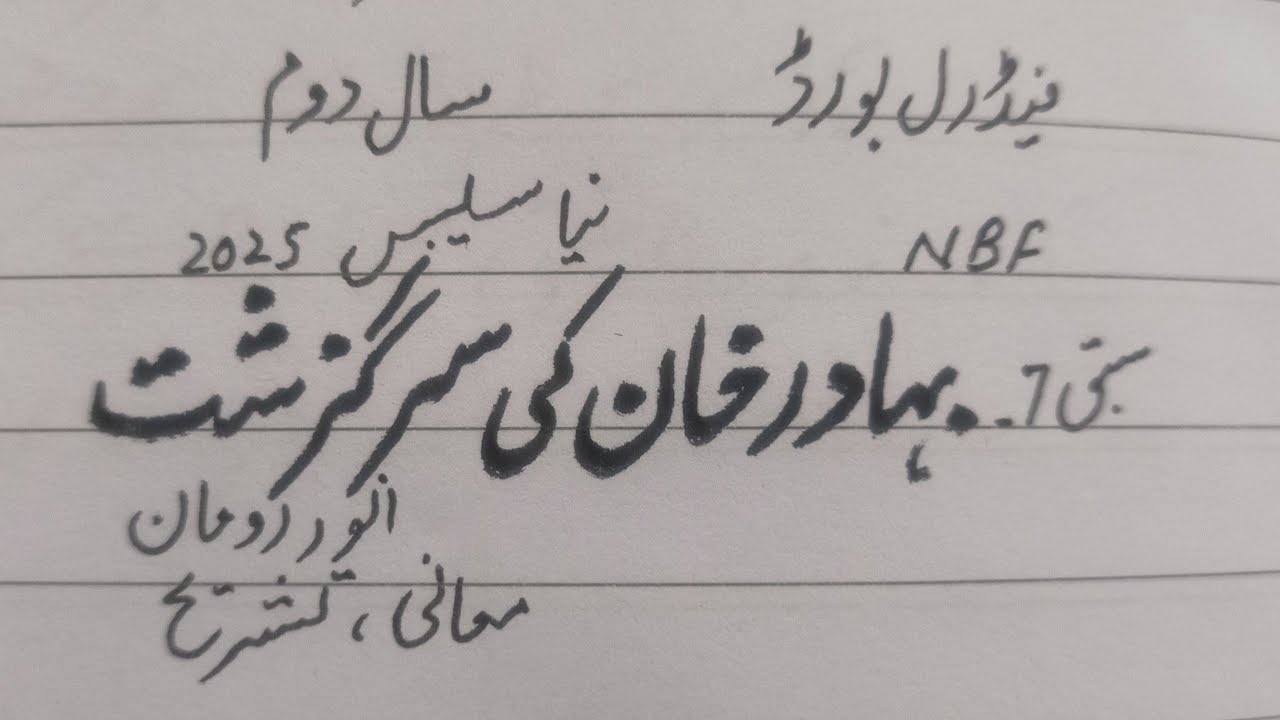 فیڈرل بورڈ سال دوم
NBF نیا سلیبس 2025
سبق 7. بہادر خان کی سرگزشت
انور رومان
معانی، تشریح